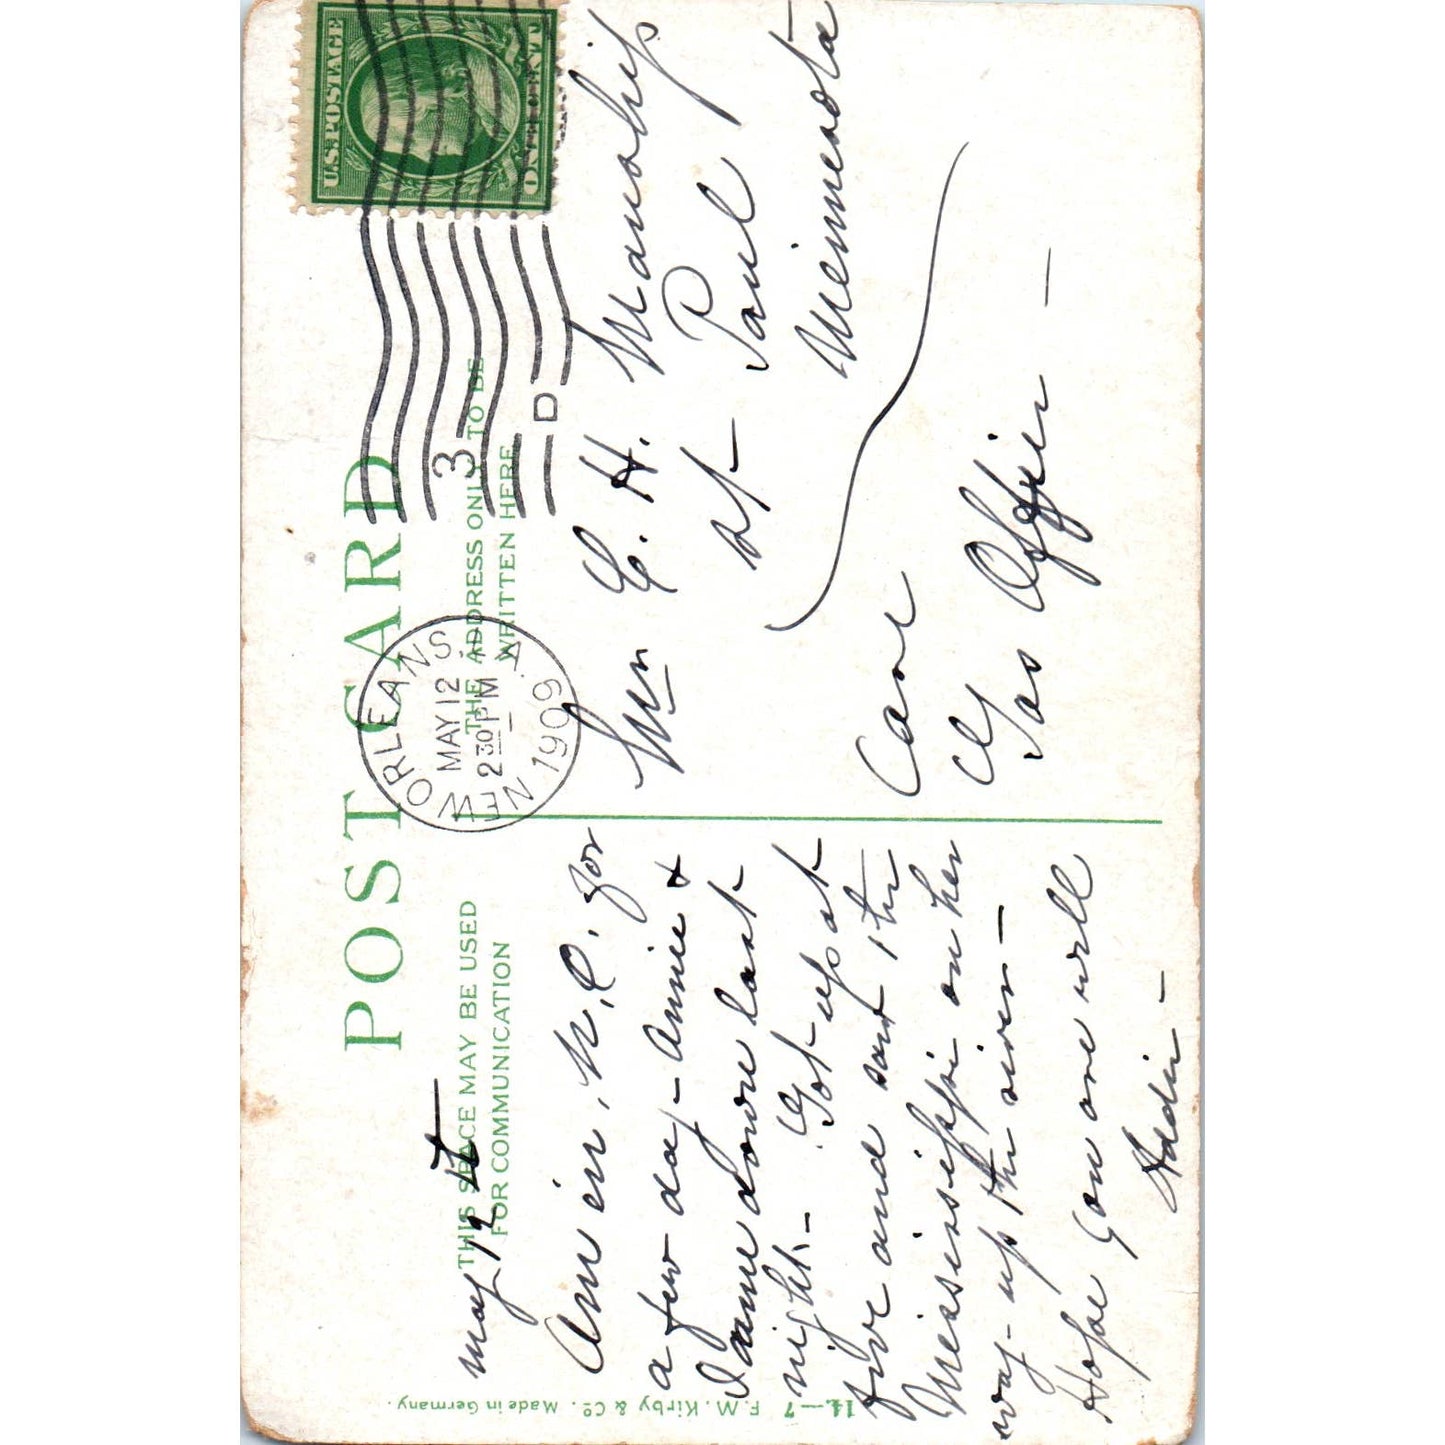 POST CARD
THIS SPACE MAY BE USED
FOR COMMUNICATION
THE ADDRESS ONLY TO BE
WRITTEN HERE
U.S. POSTAGE
ONE CENT
NEW ORLEANS
MAY 12
2 30 PM
1909
3
D
May 12
Am in N.O. for
a few day- Annie &
I came down last
night- Got up at
five and saw the
Mississippi on her
way- up the river-
Hope you are well
Addie-
C. H. Manship
St- Paul
Minnesota
Care
Gas Office-
14.—7 F. M. Kirby & Co. Made in Germany.